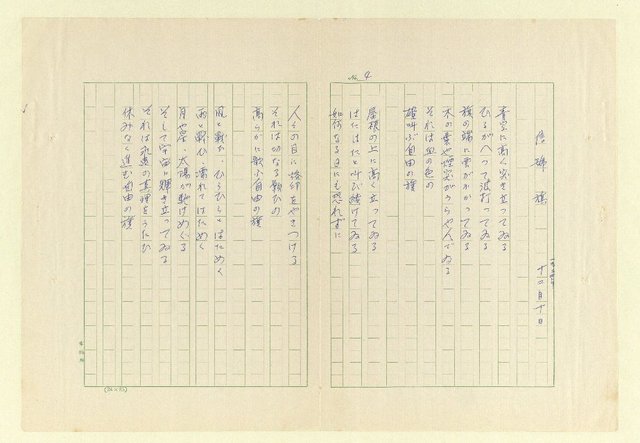 No. 4
信号旗
十二月十日
青空に高く突き立ってゐる
ひるがへって波打ってゐる
旗の端に雲がかかってゐる
木の葉や煙突がうらやんでゐる
それは血の色の
雄叫ぶ自由の旗
屋根の上に高く立ってゐる
はたはたと叫び続けてゐる
如何なる日にも恐れずに
人々の目に烙印をやきつける
それは切なる歓びの
高らかに歌ふ自由の旗
風と戦ひ、ひらひらとはためく
雨と戦ひ、濡れてはためく
月や星、太陽が馳けめぐる
そして宇宙に輝き立ってゐる
それは永遠の真理をうたひ
休みなく進む自由の旗